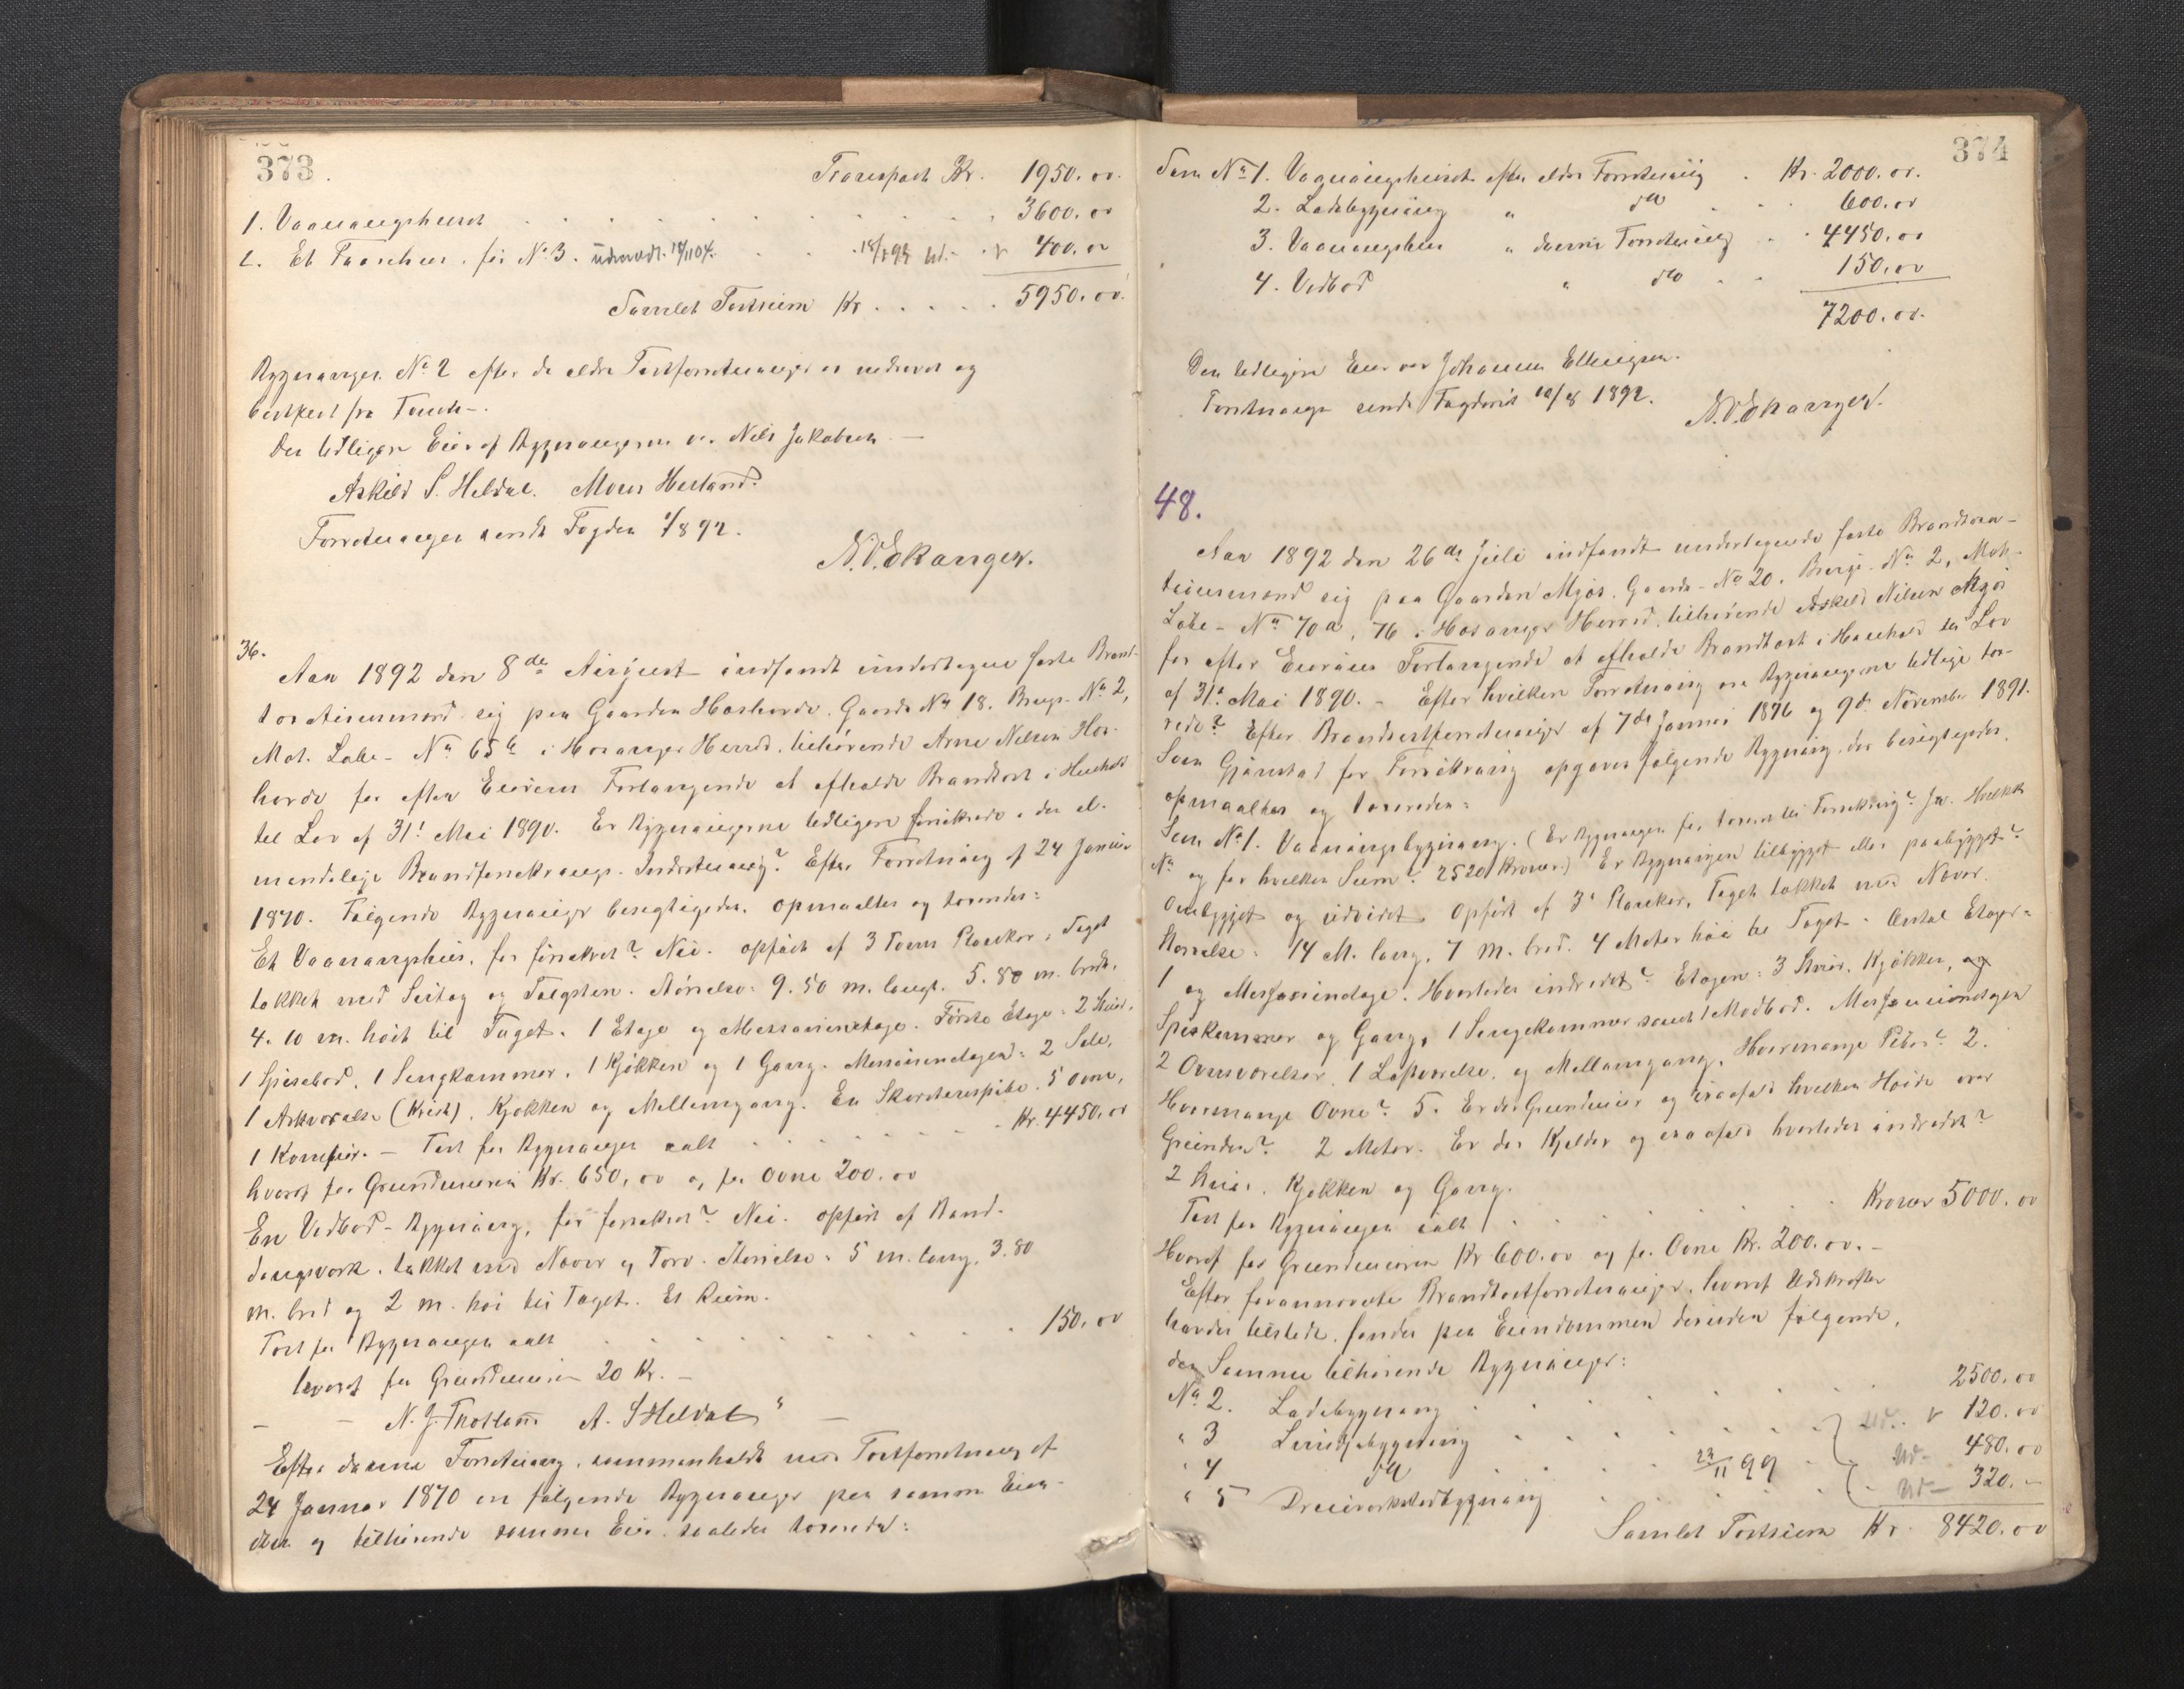 373.
Transport Kr. 1950.00.
1. Vaaningshuset . . . . 3600.00
2. Et Faarehus, før No 3. udmeldt 18/11 04. . . 18/1 95 ud. 400.00
Samlet Taxtsum Kr. . . . . 5950.00.
Bygningen No 2 efter de ældre Taxtforretninger er nedrevet og
bortført fra Tomten.
Den tidligere Eier af Bygningerne var Nils Jakobsen. —
Askild S. Heldal. Mons Herland.
Forretningen sendt Fogden /8 92.
N. O. Skanger.
36.
Aar 1892 den 8de August indfandt undertegnede faste Brand-
taxtionsmænd sig paa Gaarden Hoshovde, Gaards No 18. Brugs- No 2,
Mat. Løbe- No 65b i Hosanger Herred, tilhørende Arne Nilsen Hos-
hovde for efter Eierens Forlangende at afholde Brandtaxt i Henhold
til Lov af 31te Mai 1890. Er Bygningerne tidligere forsikrede i den al-
mindelige Brandforsikrings-Indretning? Efter Forretning af 24 Januar
1870. Følgende Bygninger besigtigedes, opmaaltes og taxeredes:
Et Vaaningshus, før forsikret? Nei. opført af 3 Toms Planker, Taget
tækket med Sutag og Tagsten. Størrelse: 9.50 m. langt. 5.80 m. bredt,
4.10 m. høit til Taget. 1 Etage og Messaninetage. Første Etage: 2 Stuer,
1 Spisebod, 1 Sengkammer, 1 Kjøkken og 1 Gang. Messaninetagen: 2 Sale,
1 Arkværelse (Kvist), Kjøkken og Mellemgang. En Skorstenspibe. 5 Ovne,
1 Komfur. — Taxt for Bygningen ialt . . . . Kr. 4450.00
hvoraf for Grundmuren Kr. 650,00 og for Ovne 200.00
En Vedbod-Bygning, før forsikret? Nei. opført af Bind-
dingsværk, tækket med Næver og Torv. Størrelse: 5 m. lang, 3.80
m. bred og 2 m. høi til Taget. Et Rum.
Taxt for Bygningen ialt . . . . 150.00
hvoraf for Grundmuren 20 Kr. —
— — N. J. Trotland A. S. Heldal —
Efter denne Forretning, sammenholdt med Taxtforretning af
24 Januar 1870 er følgende Bygninger paa samme Eien-
dom og tilhørende samme Eier saaledes taxeret:
374
Som No 1. Vaaningshuset efter ældre Forretning . Kr. 2000.00.
2. Ladebygning " do . . 600.00
3. Vaaningshus " denne Forretning . . 4450.00
4. Vedbod " do . . 150.00
7200.00.
Den tidligere Eier var Johannes Ellingsen.
Forretningen sendt Fogderiet 10/8 1892.
N. O. Skanger.
48.
Aar 1892 den 26de Juli indfandt undertegnede faste Brandtaxa-
tionsmænd sig paa Gaarden Mjøs, Gaards- No 20. Brugs- No 2, Mat-
Løbe- No 70a, 76 i Hosanger Herred, tilhørende Askild Nilsen Mjøs
for efter Eierens Forlangende at afholde Brandtaxt i Henhold til Lov
af 31te Mai 1890. – Efter hvilken Forretning ere Bygningerne tidligere tax-
rede? Efter Brandtaxtforretninger af 7de Januar 1876 og 9de November 1891.
Som Gjenstand for Forsikring opgaves følgende Bygning, der besigtigedes,
opmaaltes og taxeredes:
Som No 1. Vaaningsbygning. (Er Bygningen før taxeret til Forsikring? Ja. Hvilket
No og for hvilken Sum? 2520 Kroner.) Er Bygningen tilbygget eller paabygget?
Ombygget og udvidet. Opført af 3" Planker, Taget tækket med Næver.
Størrelse: 14 M. lang, 7 m. bred. 4 Meter høi til Taget. Antal Etager:
1 og Messaninetage. Hvorledes indredet? Etagen: 3 Stuer, Kjøkken, og
Spiskammer og Gang, 1 Sengekammer samt 1 Madbod. Messaninetagen
2 Ovnsværelser, 1 Loftværelse og Mellemgang. Hvormange Piber? 2.
Hvormange Ovne? 5. Er der Grundmur og isaafald hvilken Høide over
Grunden? 2 Meter. Er der Kjelder og isaafald hvorledes indredet?
2 Stuer, Kjøkken og Gang.
Taxt for Bygningen ialt . . . . Kroner 5000.00
Hvoraf for Grundmuren Kr 600.00 og for Ovne Kr. 200.00. –
Efter forannævnte Brandtaxtforretninger, hvoraf Udskrifter
havdes tilstede, fandes paa Eiendommen desuden følgende,
den Samme tilhørende Bygninger:
No 2. Ladebygning . . . . 2500.00
" 3 . . . . ud. 120.00
" 4 do . . . . 23/11 99 ud- 480.00
" 5 Dreieværkstedbygning . . . ud- 320.–
Samlet Taxtsum Kr. 8420.00